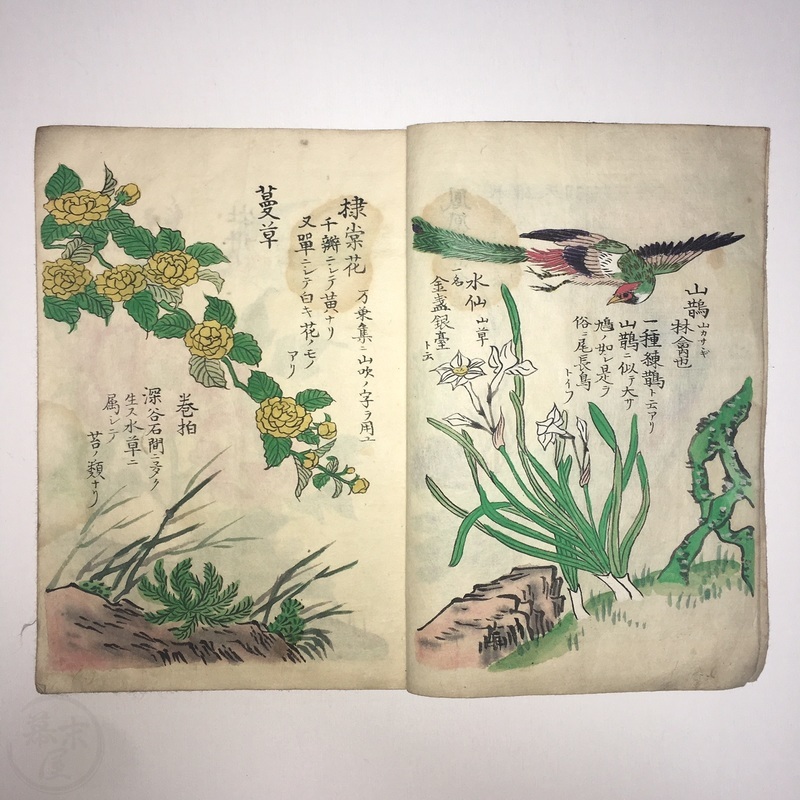 山鵲 山カサヽギ
林禽也
一種練鵲ト云アリ
山鵲ニ似テ大サ
鳩ノ如シ是ヲ
俗ニ尾長鳥
トイフ
水仙 山草
一名
金盞銀臺
ト云
棣棠花 万葉集ニ山吹ノ字ヲ用ユ
千瓣ニシテ黄ナリ
又單ニシテ白キ花ノモノ
アリ
蔓草
巻柏
深谷石間ニ多ク
生ス水草ニ
属シテ
苔ノ類ナリ
幕末屋